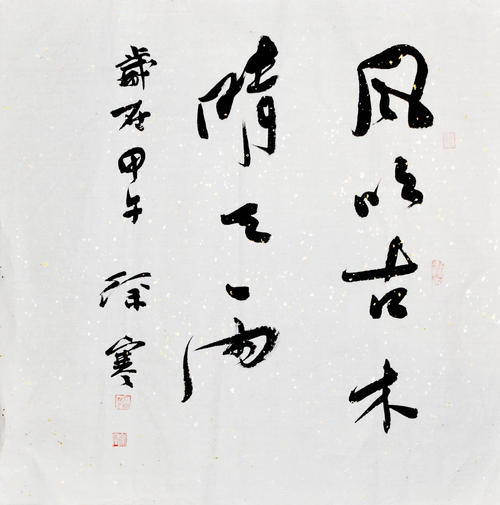 风吹古木
晴天雨
歲在甲午 徐寒